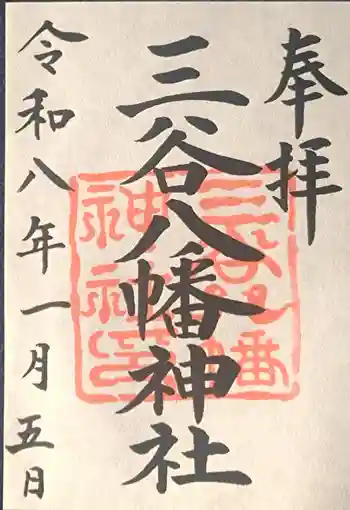 奉拝
三谷八幡神社
三谷八幡
神社印
令和八年一月五日